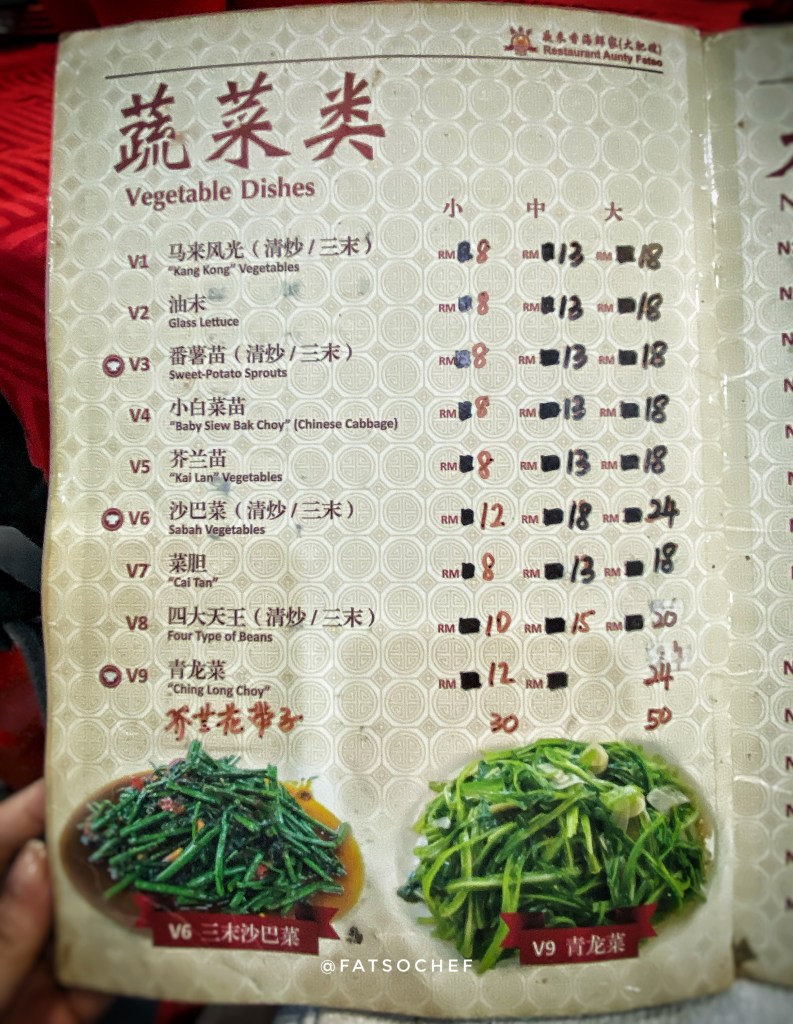 夜来香海鲜家(大肥婆)
Restaurant Aunty Fatso
蔬菜类
Vegetable Dishes
小 中 大
V1 马来风光 ( 清炒 / 三末 ) RM 8 RM 13 RM 18
"Kang Kong" Vegetables
V2 油末 RM 8 RM 13 RM 18
Glass Lettuce
V3 番薯苗 ( 清炒 / 三末 ) RM 8 RM 13 RM 18
Sweet-Potato Sprouts
V4 小白菜苗 RM 8 RM 13 RM 18
"Baby Siew Bak Choy" (Chinese Cabbage)
V5 芥兰苗 RM 8 RM 13 RM 18
"Kai Lan" Vegetables
V6 沙巴菜 ( 清炒 / 三末 ) RM 12 RM 18 RM 24
Sabah Vegetables
V7 菜胆 RM 8 RM 13 RM 18
"Cai Tan"
V8 四大天王 ( 清炒 / 三末 ) RM 10 RM 15 RM 20
Four Type of Beans
V9 青龙菜 RM 12 RM 24
"Ching Long Choy"
芥兰花带子 30 50
V6 三末沙巴菜
V9 青龙菜
@FATSOCHEF